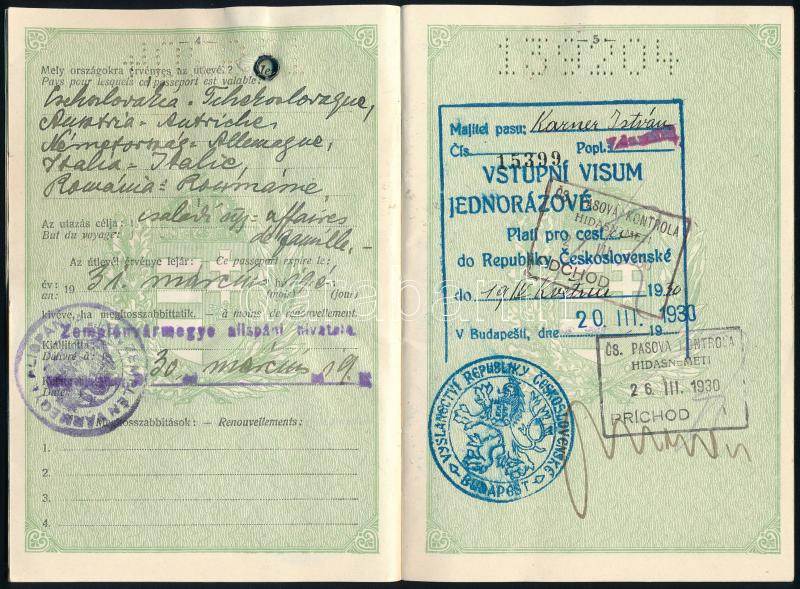 — 4 —
Mely országokra érvényes az útlevél?
Pays pour lesquels ce passeport est valable:
Csehszlovákia = Tchékoslovaquie,
Ausztria = Autriche,
Németország = Allemagne,
Italia = Italie,
Románia = Roumanie,
Az utazás célja: családi ügy = affaires
But du voyage: de famille. —
Az útlevél érvénye lejár: — Ce passeport expire le:
év: 19 31. március 19-én
(mois) (jour)
kivéve, ha meghosszabbíttatik. — à moins de renouvellement.
Zemplénvármegye alispáni hivatala
Kiállította:
Délivré à:
30. március 19
Date:
ZEMPLÉN VÁRMEGYE ALISPÁN
Meghosszabbítások: — Renouvellements:
1.
2.
3.
4.
— 5 —
139204
Majitel pasu: Karner István
Čís. 15399 Popl.
VSTUPNÍ VISUM
JEDNORÁZOVÉ
Platí pro cest
do Republiky Československé
do 1930
20 III. 1930
V Budapešti, dne 19
ČS. PASOVÁ KONTROLA
HIDASNEMETI
ODCHOD
ČS. PASOVÁ KONTROLA
HIDASNEMETI
26. III. 1930
PŘÍCHOD
VYSLANECTVÍ REPUBLIKY ČESKOSLOVENSKÉ
BUDAPEST